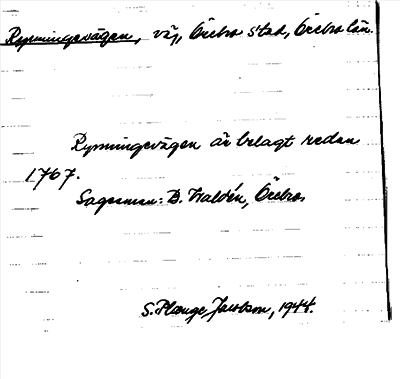 Rynningevägen, väg, Örebro stad, Örebro län.
Rynningevägen är belagt redan
1767.
Sagesman: B. Waldén, Örebro.
S. Plænge Jacobson, 1944.